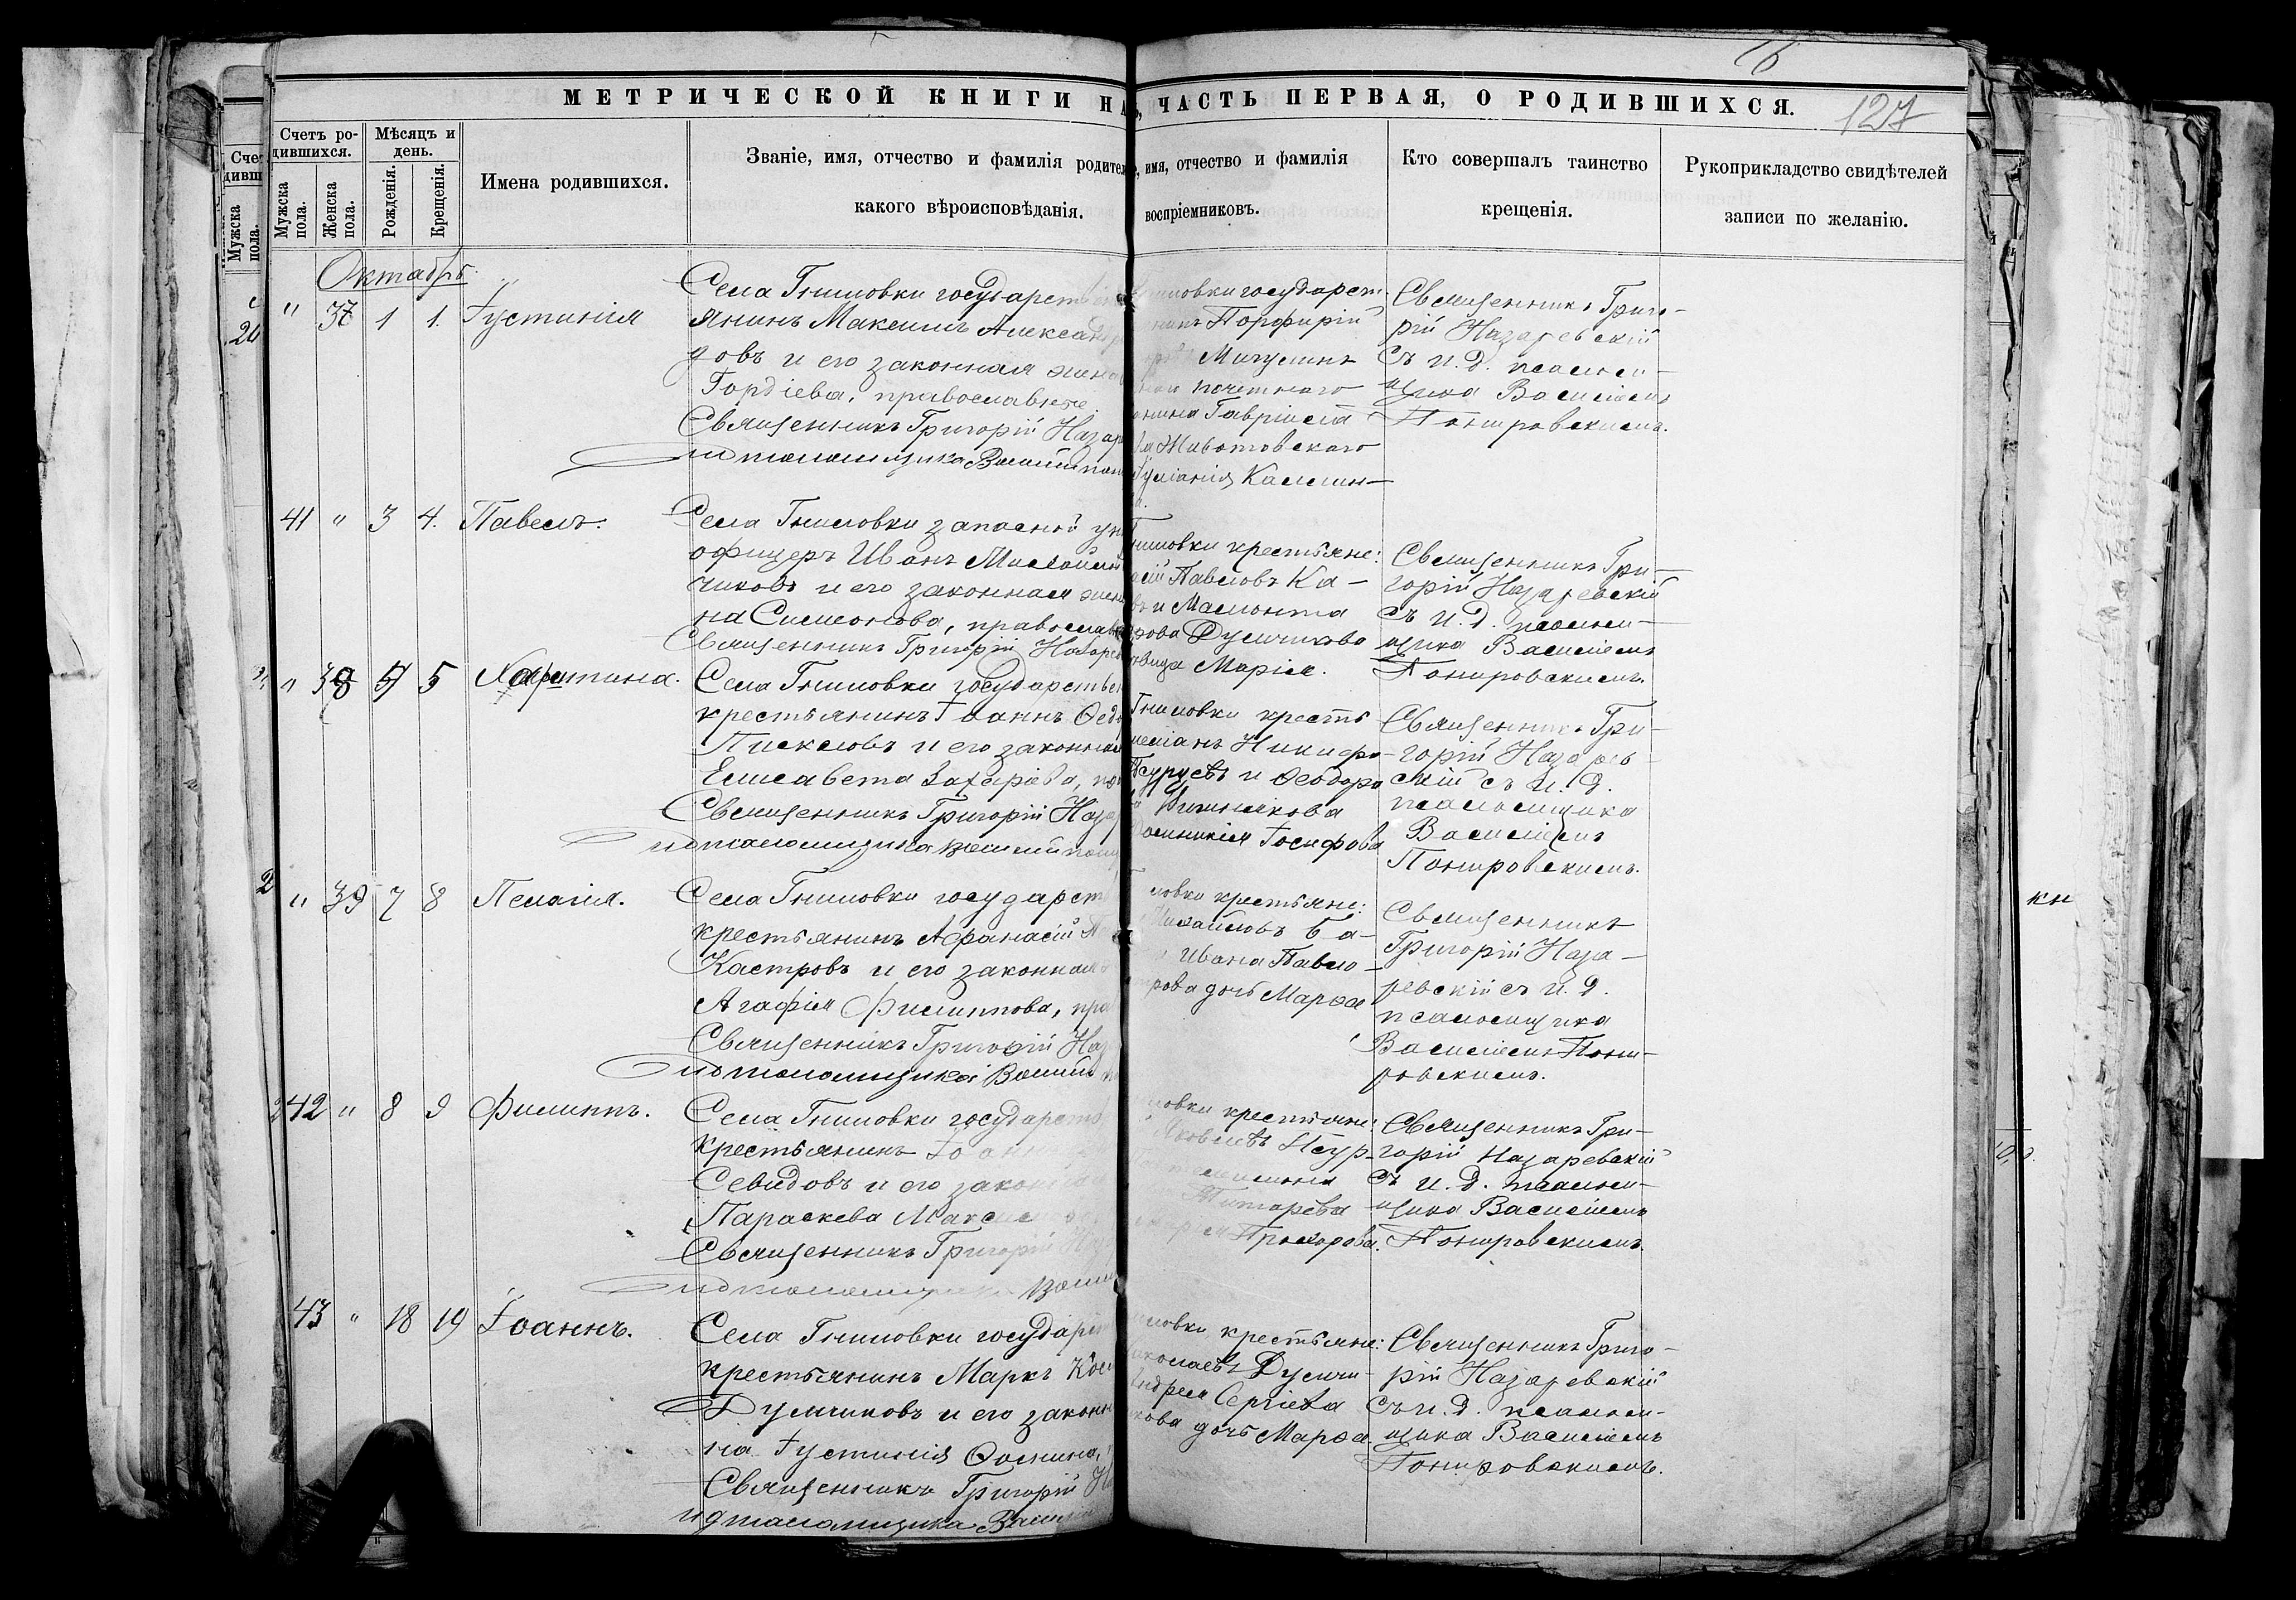 МЕТРИЧЕСКОЙ КНИГИ НА
, ЧАСТЬ ПЕРВАЯ, О РОДИВШИХСЯ.
127
Счетъ ро-
дившихся.
Мужска пола.
Женска пола.
Мѣсяцъ и день.
Рожденія.
Крещенія.
Имена родившихся.
Званіе, имя, отчество и фамилія родител
какого вѣроисповѣданія.
, имя, отчество и фамилія
воспріемниковъ.
Кто совершалъ таинство
крещенія.
Рукоприкладство свидѣтелей
записи по желанію.
Октябрь.
" 37 1 1. Іустинія
Села Гниловки государствен
янинъ Максимъ Александр
довъ и его законная жена
Гордіева, православные.
Священникъ Григорій Назар
ид псаломщика Василій пон
ниловки государст.
нинъ Порфирій
Мигулинъ
почетнаго
Гавріила
Животовскаго
Іуліанія Калин-
Священникъ Григо-
рій Назаревскій
съ и. д. псалом-
щика Василіемъ
Понировскимъ.
41 " 3 4. Павелъ.
Села Гниловки запасной ун
офицеръ Иванъ Михайлов
чиковъ и его законная жен
на Симеонова, православ
Священникъ Григорій Назарев
ниловки крестьяне:
сій Павловъ Ка-
въ и Мамонта
рова Думчикова
вица Марія.
Священникъ Гри-
горій Назаревскій
съ и. д. псалом-
щика Василіемъ
Понировскимъ.
" 38 5 Харитина.
Села Гниловки государствен
крестьянинъ Іоаннъ Ѳедо
Пикаловъ и его законная
Елисавета Захаріева, пра
Священникъ Григорій Назар
ид псаломщика Василій пони
Гниловки кресть
меліанъ Никифо-
и Ѳеодора
Іосифова
Священникъ Гри-
горій Назарев-
скій съ и. д.
псаломщика
Василіемъ
Понировскимъ.
" 39 7 8 Пелагія.
Села Гниловки государст
крестьянинъ Аѳанасій П
Кастровъ и его законная
Агафія Филиппова, пра
Священникъ Григорій Наз
ид псаломщика Василій
ловки крестьяне:
Михайловъ Ба-
Ивана Павло-
трова дочь Марѳа
Священникъ
Григорій Наза-
ревскій съ и. д.
псаломщика
Василіемъ Пони-
ровскимъ.
42 " 8 9 Филиппъ.
Села Гниловки государств
крестьянинъ Іоаннъ
Севидовъ и его законная
Параскева Максимова
Священникъ Григорій Наз
ид псаломщика Васил
ловки крестьяне:
Яковлевъ Псур-
Титарева
Прохорова.
Священникъ Гри-
горій Назаревскій
съ и. д. псалом-
щика Василіемъ
Понировскимъ.
43 " 18 19 Іоаннъ.
Села Гниловки государст
крестьянинъ Маркъ Косм
Думчиковъ и его законн
на Іустинія Ѳомина,
Священникъ Григорій На
ид псаломщика Василій
ловки крестьяне:
иколаевъ Думчи-
Андрея Сергіева
кова дочь Марѳа
Священникъ Григо-
рій Назаревскій
съ и. д. псалом-
щика Василіемъ
Понировскимъ.